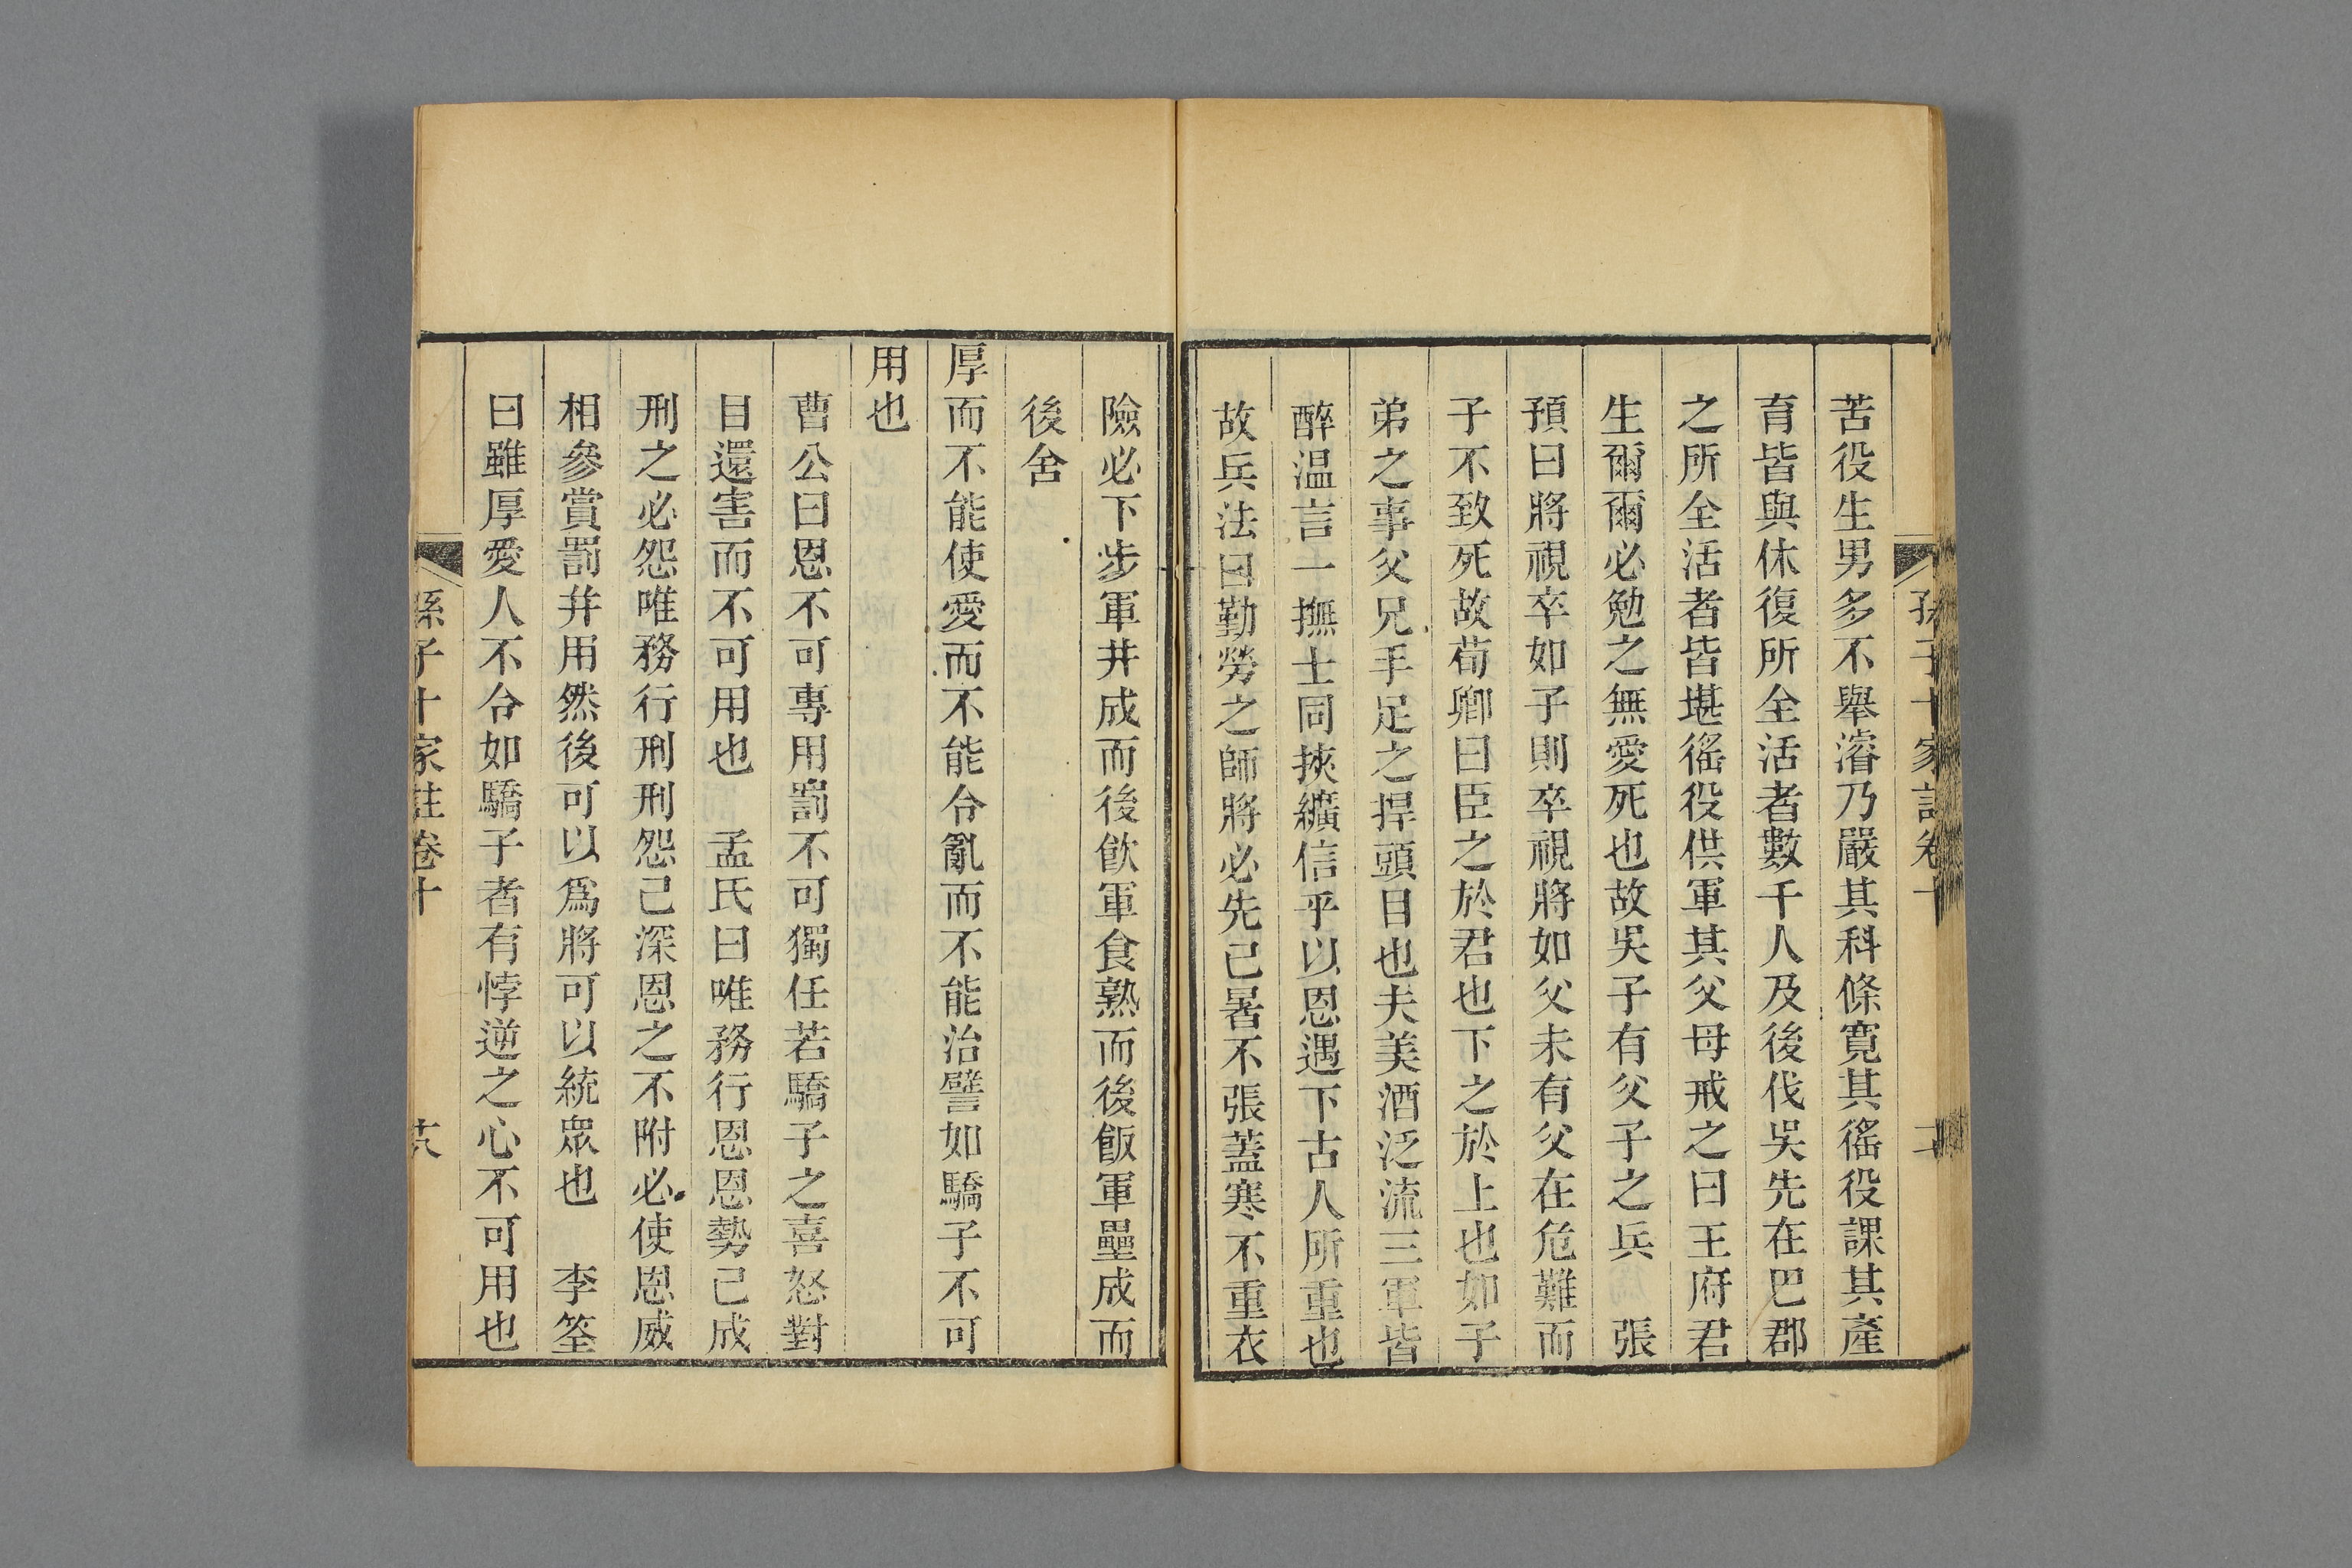 苦役生男多不舉濬乃嚴其科條寬其徭役課其產
育皆與休復所全活者數千人及後伐吳先在巴郡
之所全活者皆堪徭役供軍其父母戒之曰王府君
生爾爾必勉之無愛死也故吳子有父子之兵　張
預曰將視卒如子則卒視將如父未有父在危難而
子不致死故荀卿曰臣之於君也下之於上也如子
弟之事父兄手足之捍頭目也夫美酒泛流三軍皆
醉温言一撫士同挾纊信乎以恩遇下古人所重也
故兵法曰勤勞之師將必先己暑不張蓋寒不重衣
險必下步軍井成而後飲軍食熟而後飯軍壘成而
後舍
厚而不能使愛而不能令亂而不能治譬如驕子不可
用也
曹公曰恩不可專用罰不可獨任若驕子之喜怒對
目還害而不可用也　孟氏曰唯務行恩恩勢己成
刑之必怨唯務行刑刑怨己深恩之不附必使恩威
相參賞罰并用然後可以爲將可以統眾也　李筌
曰雖厚愛人不令如驕子者有悖逆之心不可用也
孫子十家註卷十　十六